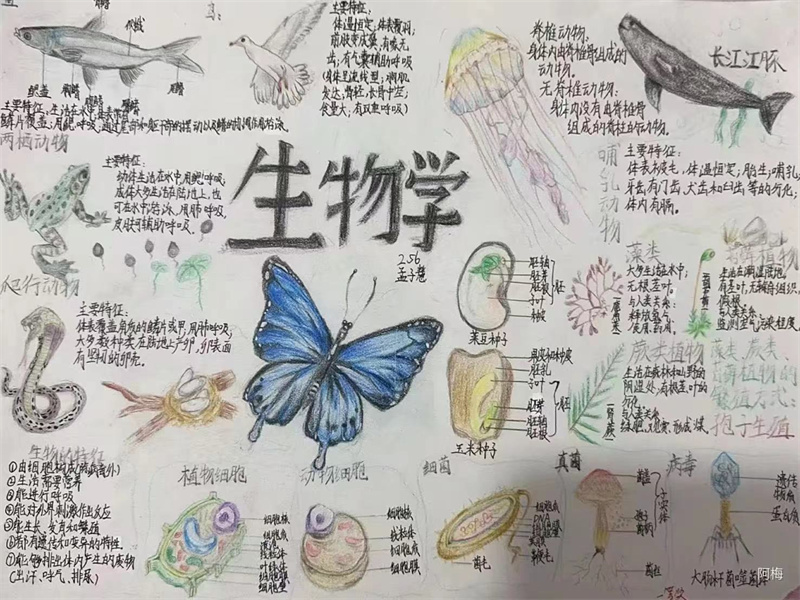 鸟：
主要特征：
体温恒定，体表覆羽；
前肢变成翼；有喙无
齿；有气囊辅助呼吸
(身体呈流线型；胸肌
发达；骨轻，长骨中空；
食量大；有双重呼吸)
脊椎动物：
身体内由脊椎骨组成的
动物。
无脊椎动物：
身体内没有由脊椎骨
组成的脊柱的动物。
长江江豚
侧线
鳃盖
主要特征：生活在水中
鳞片覆盖；用鳃呼吸；通过尾部和躯干部的摆动以及鳍的协调作用游泳。
两栖动物
主要特征：
幼体生活在水中，用鳃呼吸；
成体大多生活在陆地上，也
可在水中游泳，用肺呼吸，
皮肤可辅助呼吸。
哺乳动物
主要特征：
体表被毛；体温恒定；胎生，哺乳；
牙齿有门齿、犬齿和臼齿等的分化；
体内有膈。
生物学
256
孟子慧
爬行动物
主要特征：
体表覆盖角质的鳞片或甲；用肺呼吸；
大多数种类在陆地上产卵，卵表面
有坚韧的卵壳。
胚轴
胚芽
胚根
子叶
胚
种皮
菜豆种子
果皮和种皮
胚乳
子叶
胚芽
胚轴
胚根
胚
玉米种子
藻类
大多生活在水中；
无根茎叶。
与人类关系：
释放氧气；
食用药用。
苔藓植物
生活在潮湿陆地。
有茎叶，无输导组织，
假根
与人类关系：
监测空气污染程度。
蕨类植物
生活在森林和山野的
阴湿处；有根茎叶的
分化
与人类关系：
绿肥、观赏、形成煤。
藻类、蕨类、
苔藓植物的
繁殖方式：
孢子生殖
生物的特征
①由细胞构成(病毒除外)
②生活需要营养
③能进行呼吸
④能对外界刺激作出反应
⑤能生长、发育和繁殖
⑥都有遗传和变异的特性
⑦能够排出体内产生的废物
(出汗、呼气、排尿)
植物细胞
细胞核
细胞质
液泡
线粒体
叶绿体
细胞膜
细胞壁
动物细胞
细胞核
线粒体
细胞质
细胞膜
细菌
细胞质
DNA
细胞壁
荚膜
鞭毛
菌毛
真菌
菌盖
孢子
菌柄
子实体
菌丝
病毒
遗传
物质
蛋白质
大肠杆菌噬菌体
阿梅